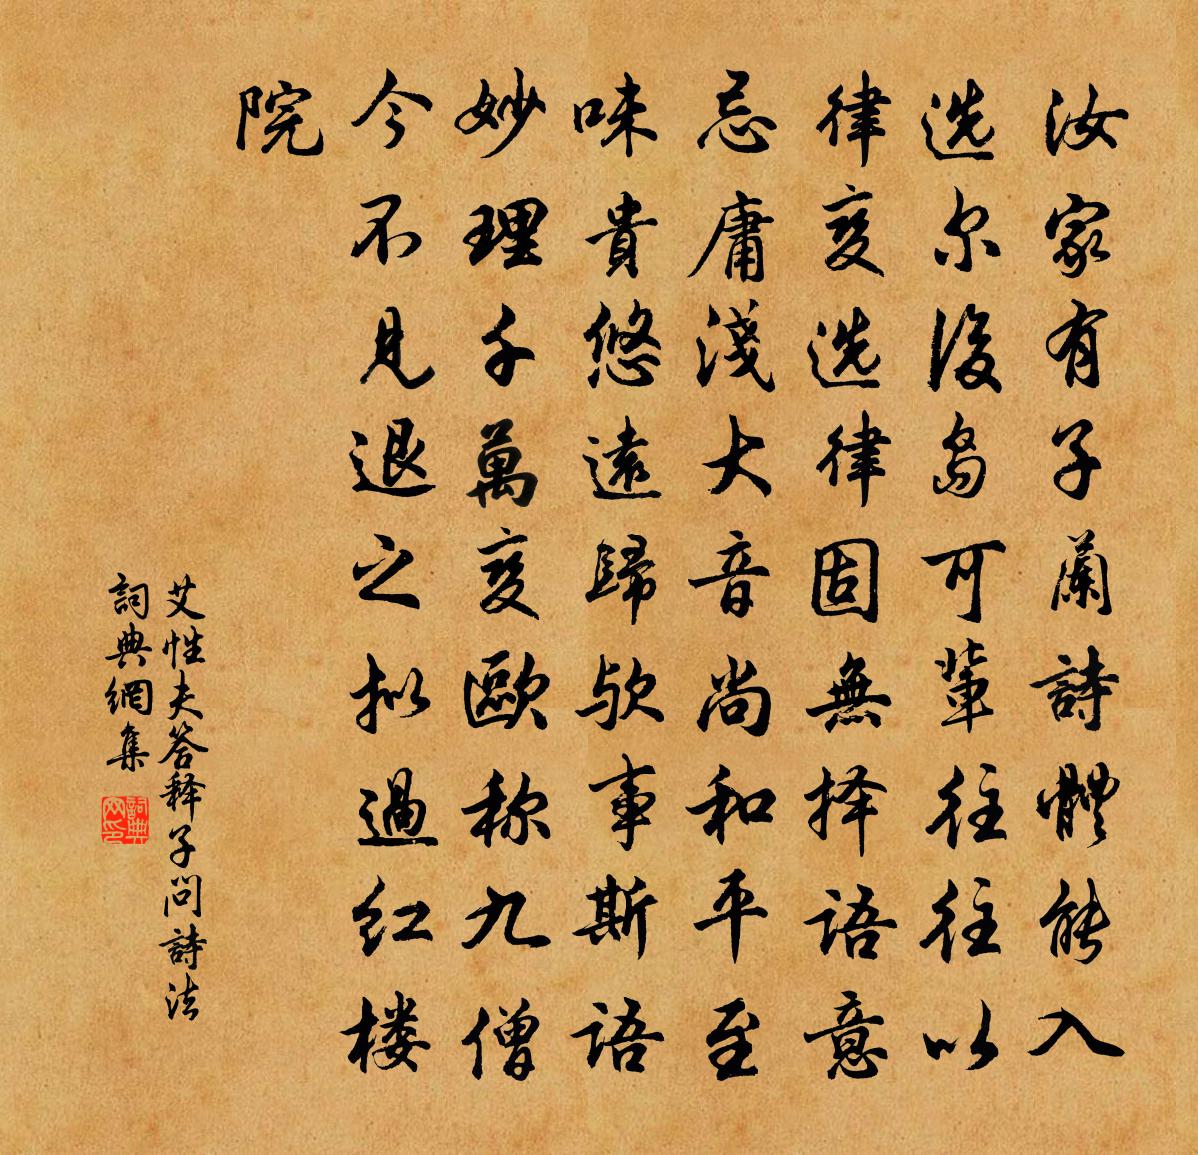 汝家有子蘭詩體能入
选尔後島可輩往往以
律变选律固無择語意
忌庸淺大音尚和平至
味貴悠遠歸欤事斯語
妙理千萬变歐称九僧
今不見退之拟過红楼
院
艾性夫答释子問詩法
詞典網集
詞典网印